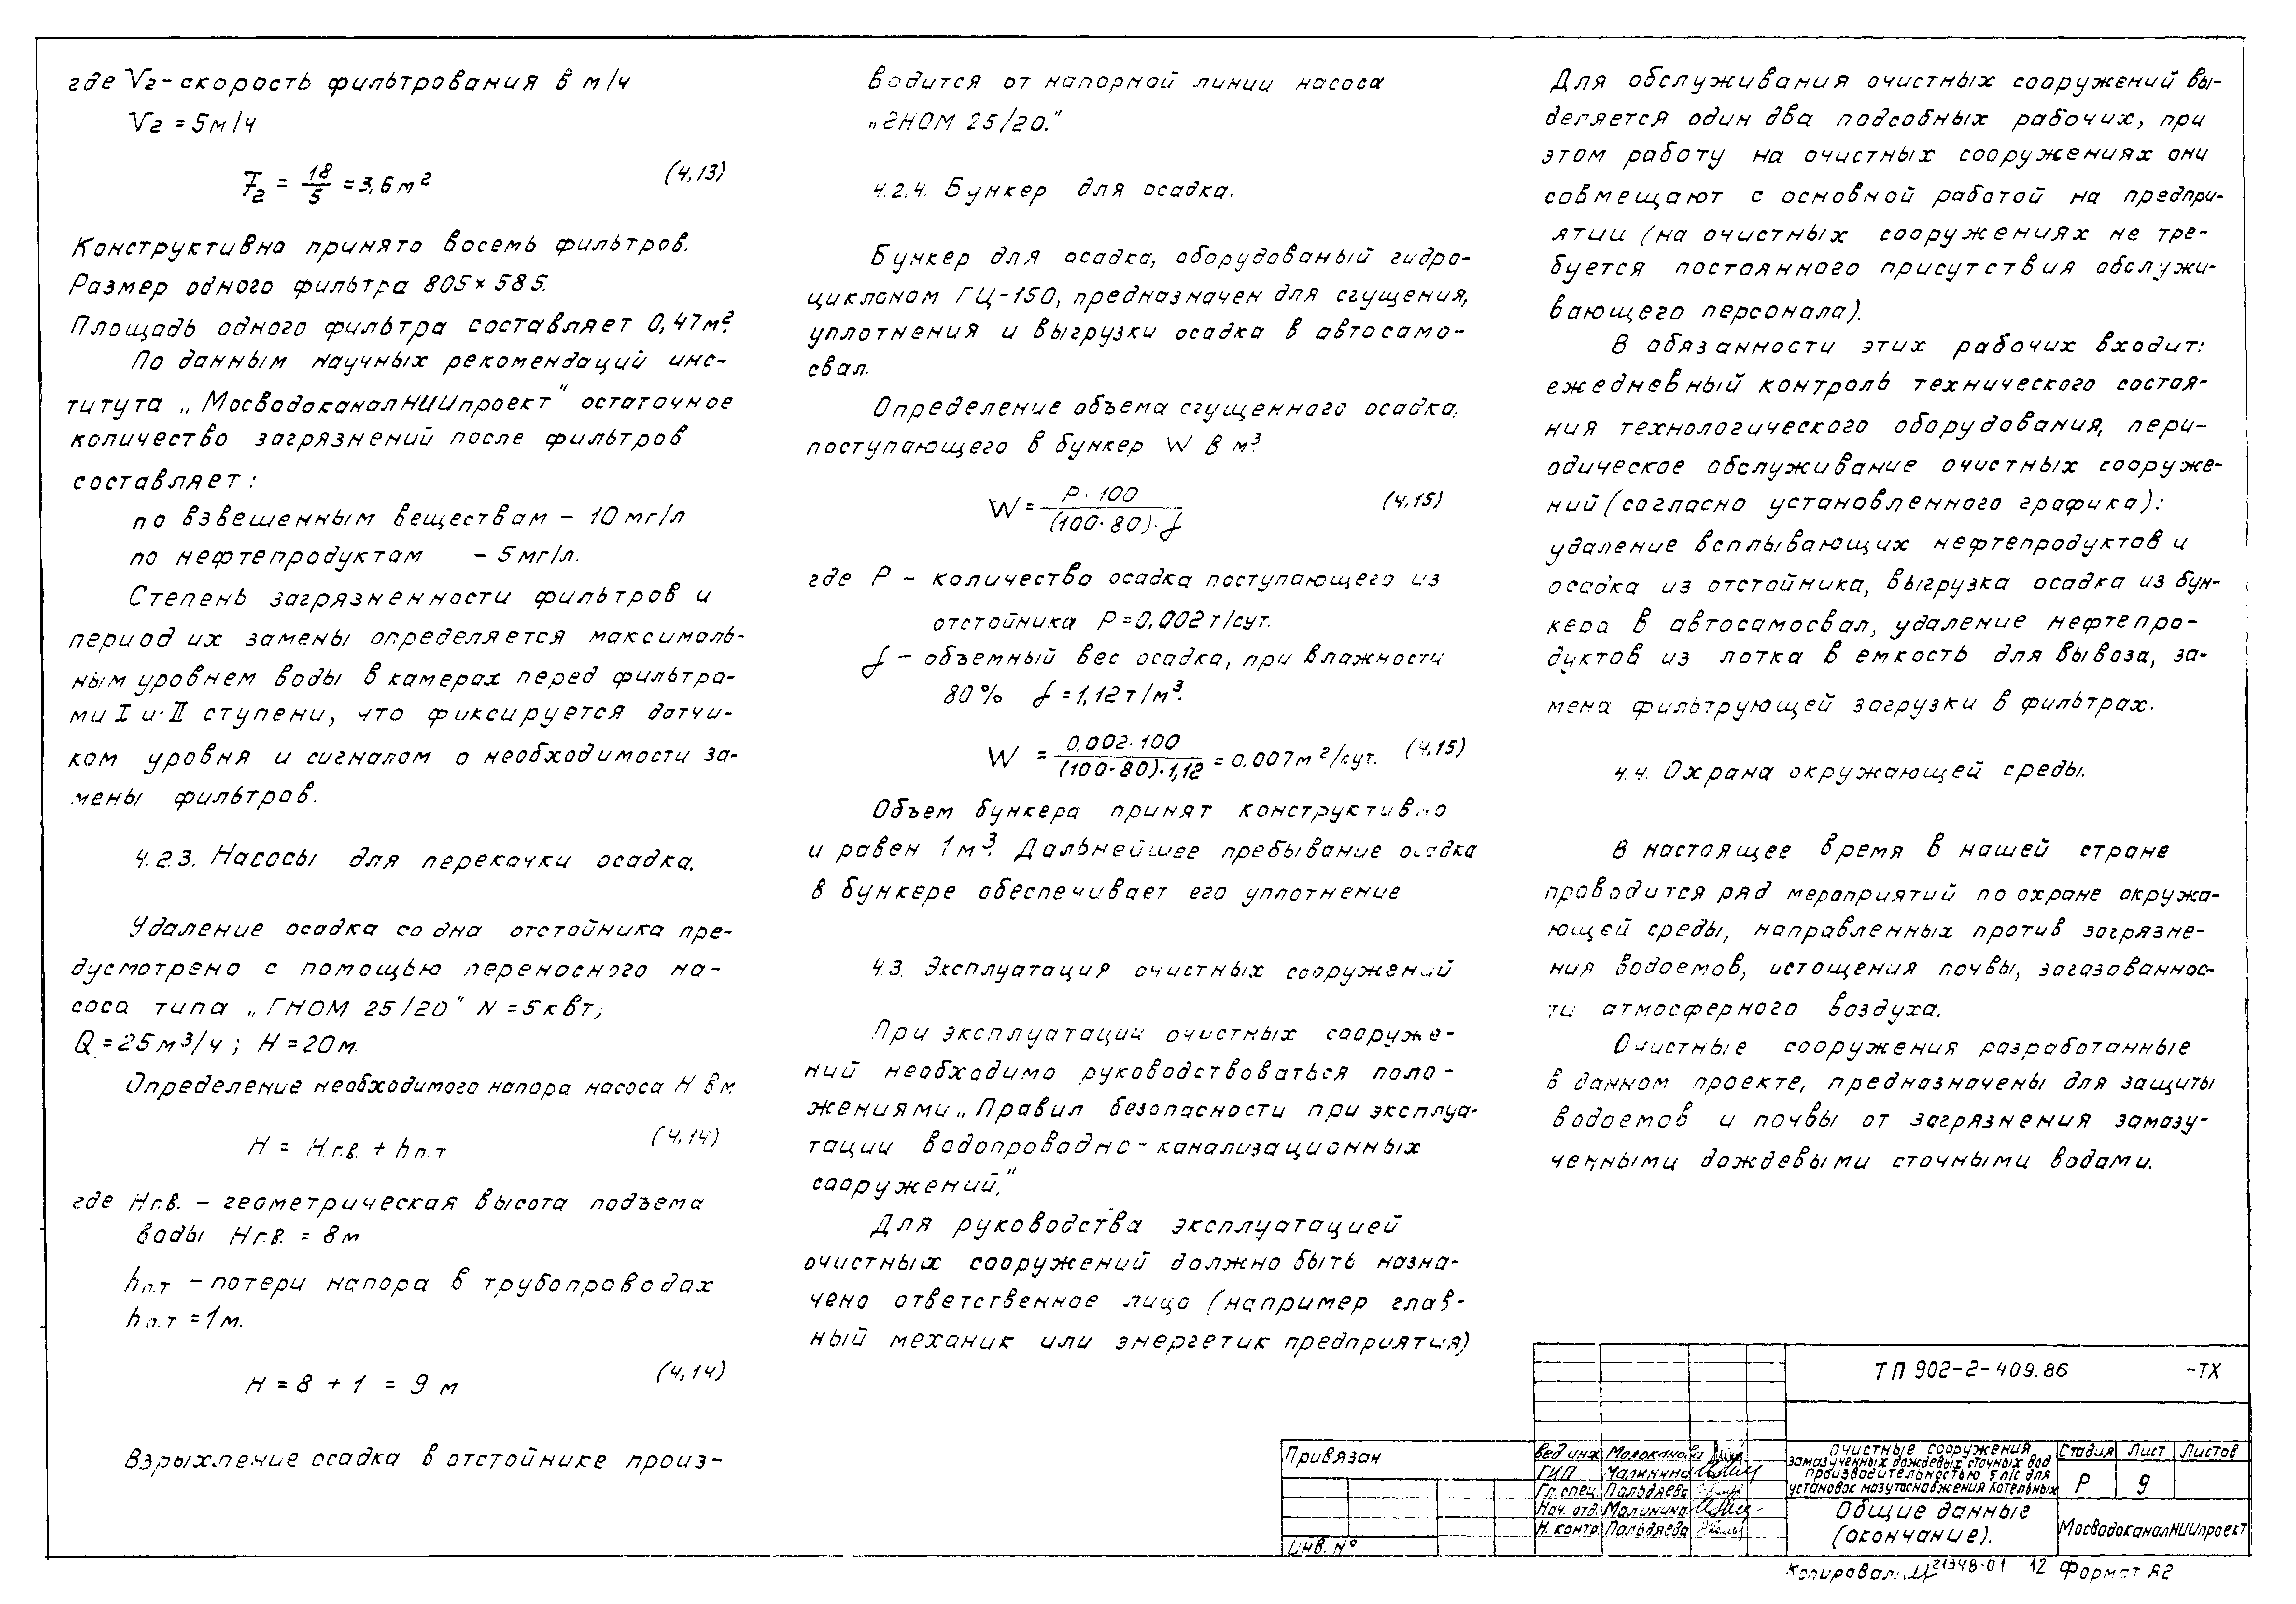 где V₂ - скорость фильтрования в м/ч
V₂ = 5 м/ч
F₂ = 18/5 = 3,6 м² (4,13)
Конструктивно принято восемь фильтров.
Размер одного фильтра 805×585.
Площадь одного фильтра составляет 0,47 м².
По данным научных рекомендаций инс-
титута „МосводоканалНИИпроект" остаточное
количество загрязнений после фильтров
составляет:
по взвешенным веществам - 10 мг/л
по нефтепродуктам - 5 мг/л.
Степень загрязненности фильтров и
период их замены определяется максималь-
ным уровнем воды в камерах перед фильтра-
ми I и II ступени, что фиксируется датчи-
ком уровня и сигналом о необходимости за-
мены фильтров.
4.2.3. Насосы для перекачки осадка.
Удаление осадка со дна отстойника пре-
дусмотрено с помощью переносного на-
соса типа „ГНОМ 25/20" N = 5 квт;
Q = 25 м³/ч; H = 20 м.
Определение необходимого напора насоса H в м
H = Hг.в. + hп.т (4,14)
где Hг.в. - геометрическая высота подъема
воды Hг.в. = 8 м
hп.т - потери напора в трубопроводах
hп.т = 1 м.
H = 8 + 1 = 9 м (4,14)
Взрыхление осадка в отстойнике произ-
водится от напорной линии насоса
„ГНОМ 25/20."
4.2.4. Бункер для осадка.
Бункер для осадка, оборудованый гидро-
циклоном ГЦ-150, предназначен для сгущения,
уплотнения и выгрузки осадка в автосамо-
свал.
Определение объема сгущенного осадка,
поступающего в бункер W в м³
W = P·100 / (100-80)·f (4,15)
где P - количество осадка поступающего из
отстойника P = 0,002 т/сут.
f - объемный вес осадка, при влажности
80% f = 1,12 т/м³.
W = 0,002·100 / (100-80)·1,12 = 0,007 м²/сут. (4,15)
Объем бункера принят конструктивно
и равен 1 м³. Дальнейшее пребывание осадка
в бункере обеспечивает его уплотнение.
4.3. Эксплуатация очистных сооружений
При эксплуатации очистных сооруже-
ний необходимо руководствоваться поло-
жениями „Правил безопасности при эксплуа-
тации водопроводно-канализационных
сооружений."
Для руководства эксплуатацией
очистных сооружений должно быть назна-
чено ответственное лицо (например глав-
ный механик или энергетик предприятия)
Для обслуживания очистных сооружений вы-
деляется один два подсобных рабочих, при
этом работу на очистных сооружениях они
совмещают с основной работой на предпри-
ятии (на очистных сооружениях не тре-
буется постоянного присутствия обслужи-
вающего персонала).
В обязанности этих рабочих входит:
ежедневный контроль технического состоя-
ния технологического оборудования, пери-
одическое обслуживание очистных сооруже-
ний (согласно установленного графика):
удаление всплывающих нефтепродуктов и
осадка из отстойника, выгрузка осадка из бун-
кера в автосамосвал, удаление нефтепро-
дуктов из лотка в емкость для вывоза, за-
мена фильтрующей загрузки в фильтрах.
4.4. Охрана окружающей среды.
В настоящее время в нашей стране
проводится ряд мероприятий по охране окружа-
ющей среды, направленных против загрязне-
ния водоемов, истощения почвы, загазованнос-
ти атмосферного воздуха.
Очистные сооружения разработанные
в данном проекте, предназначены для защиты
водоемов и почвы от загрязнения замазу-
ченными дождевыми сточными водами.
ТП 902-2-409.86 -ТХ
Привязан
Инв. №
Вед инж Молоканова
ГИП Малинина
Гл. спец. Пальдяева
Нач. отд. Малинина
Н. контр. Пальдяева
Очистные сооружения
замазученных дождевых сточных вод
производительностью 5 л/с для
установок мазутоснабжения котельных
Стадия Лист Листов
Р 9
Общие данные
(окончание).
МосводоканалНИИпроект
Копировал: 21348-01 12 Формат А2